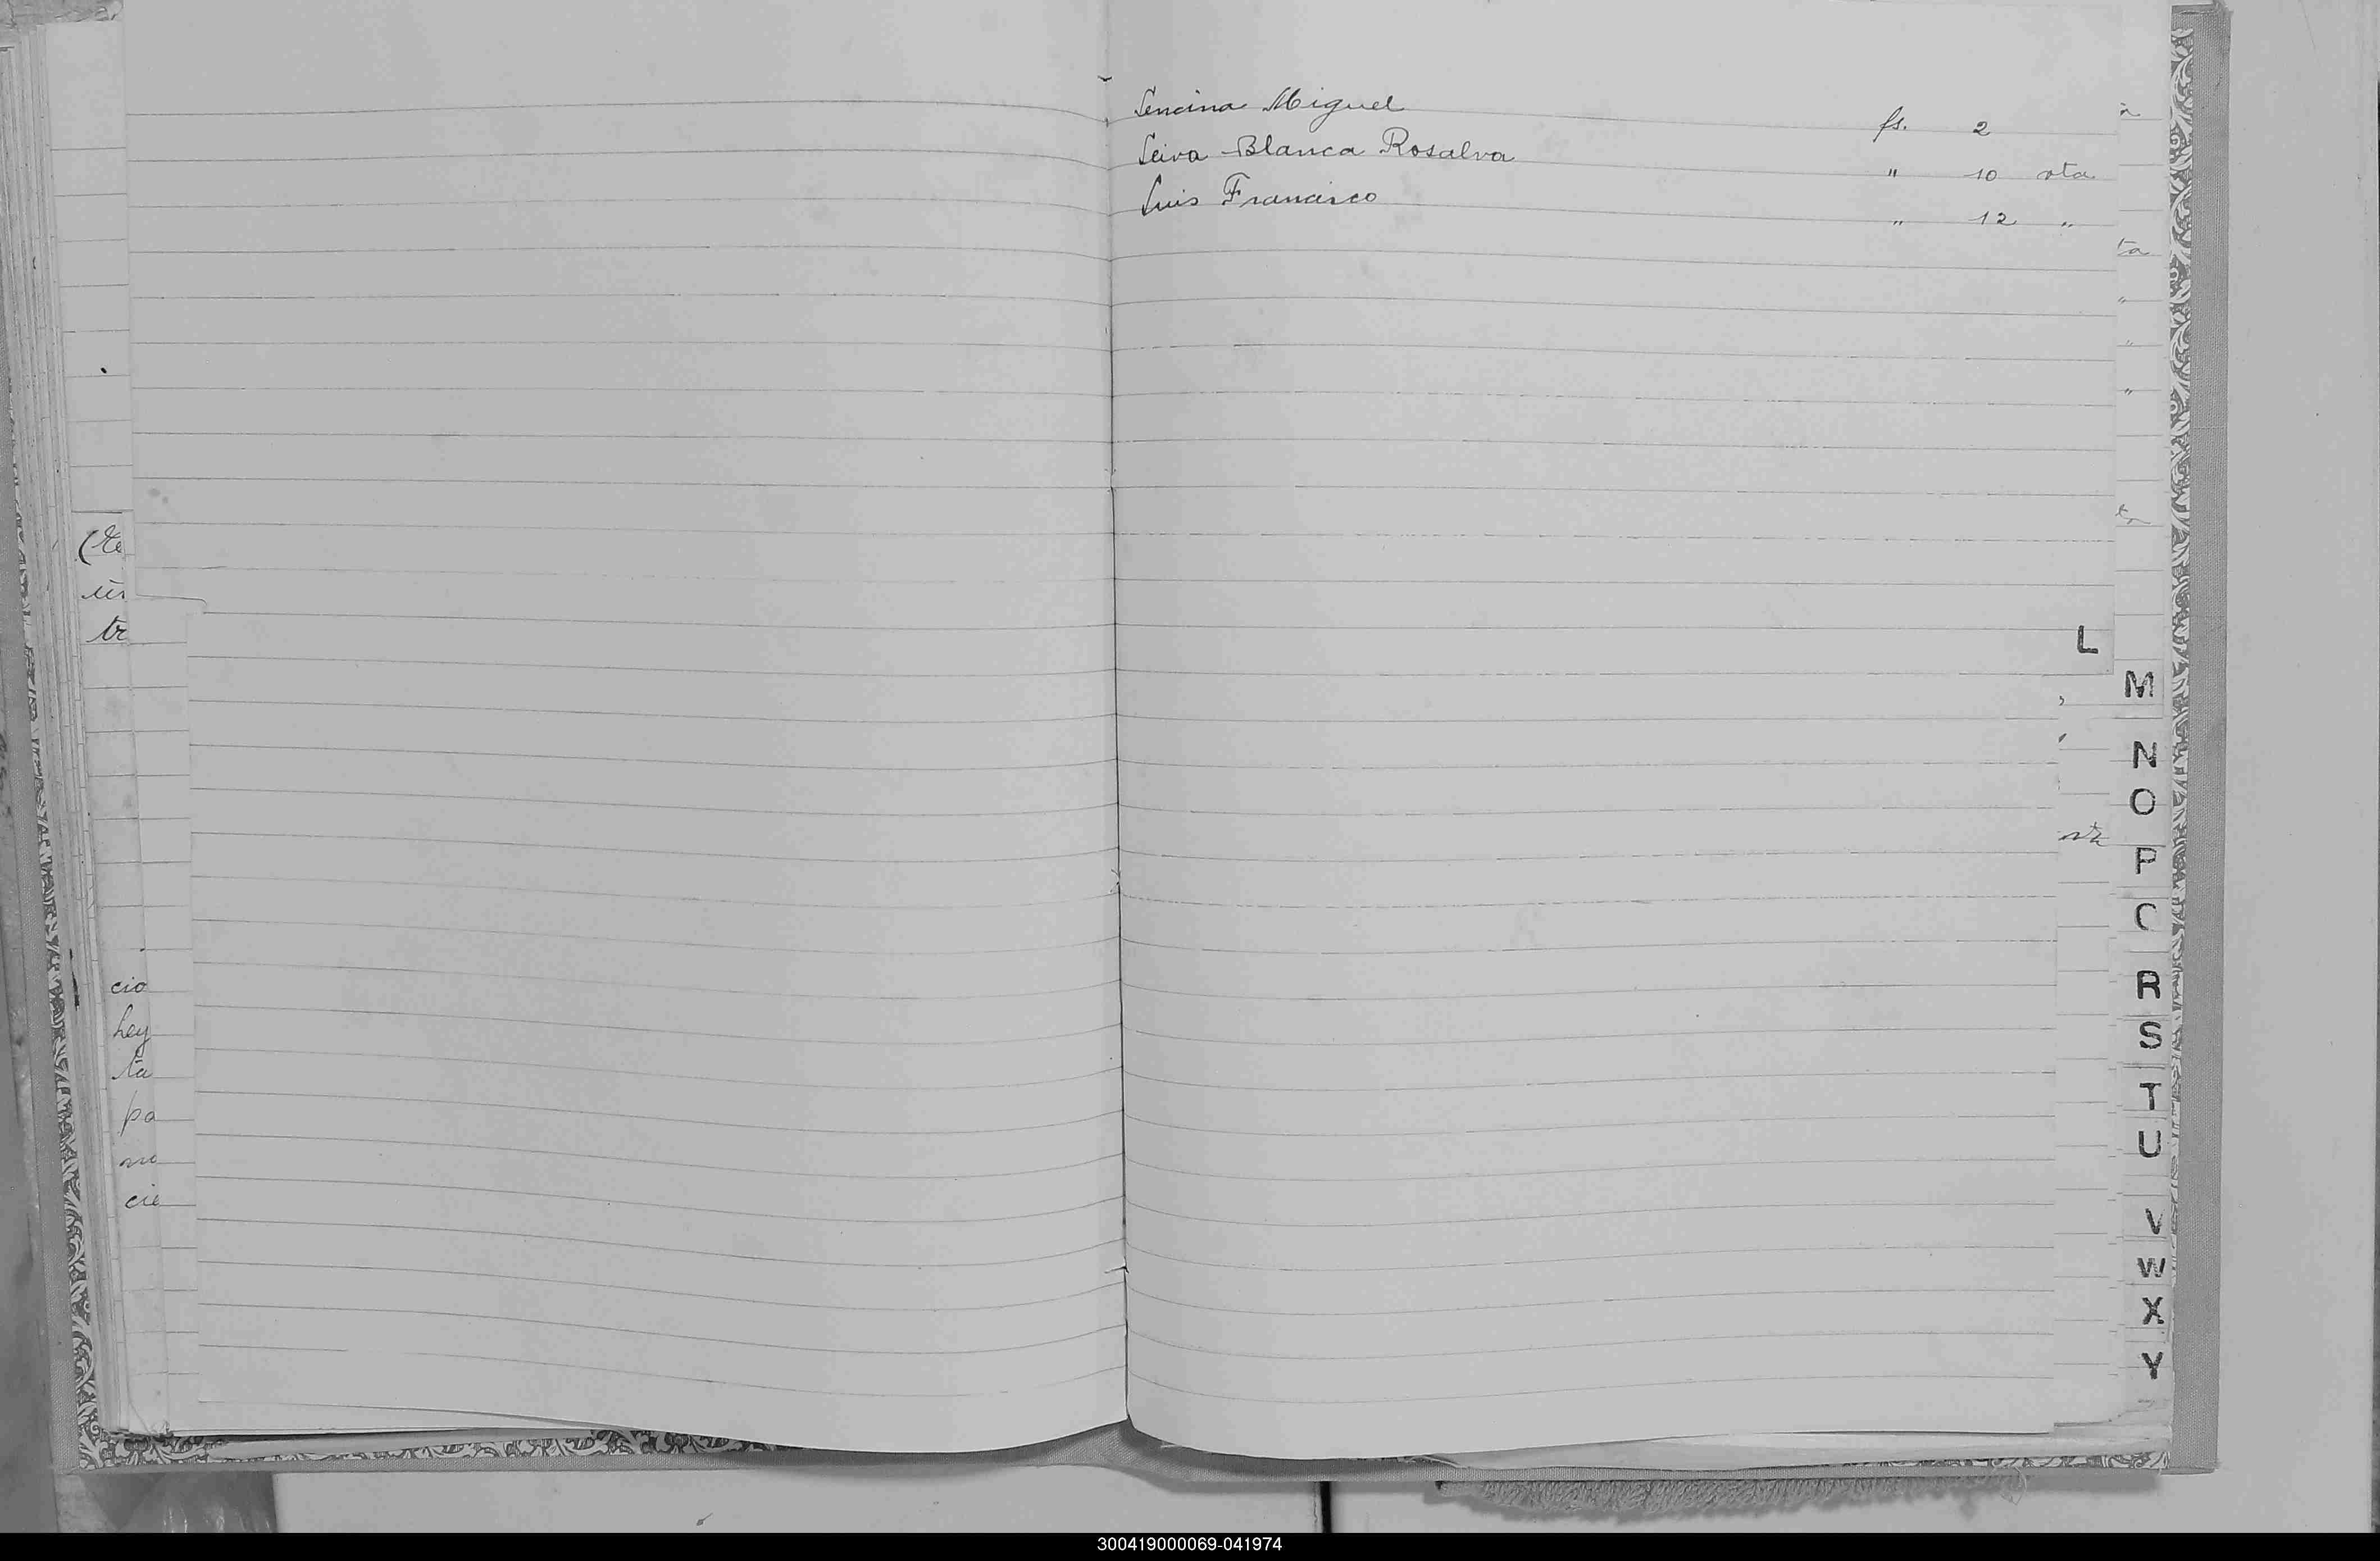 Lencina Miguel fs. 2
Leiva Blanca Rosalva " 10 vta
Luis Francisco " 12 "
ta
"
"
"
L
M
N
O
P
C
R
S
T
U
V
W
X
Y
cio
hey
ta
pa
no
cie
tr
300419000069-041974